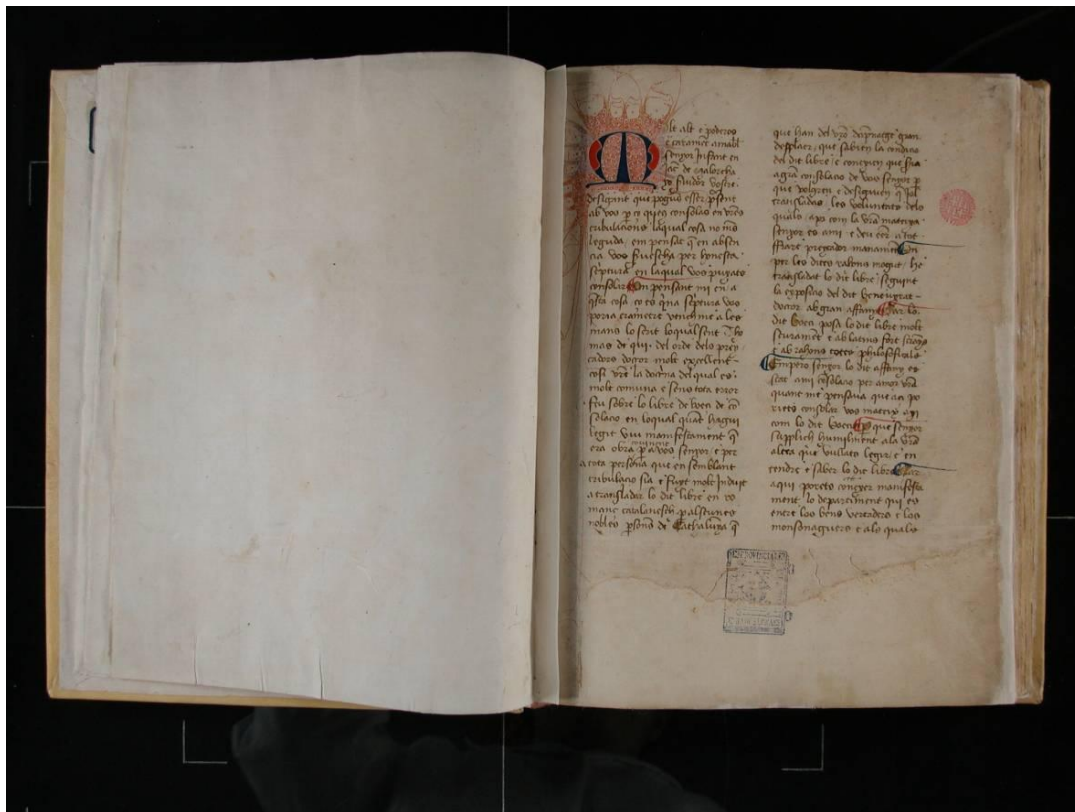 Molt alt e poderos
e caramet amabl
senyor Infant en
Jac de Malorcha
yo seruidor vostre
desigant que pogues esser psent
ab vos p ço queus consolas en vres
tribulacions laqual cosa no mes
leguda, em pensat q en absen
cia vos siruescha per honesta
sc̃ptura en laqual vos puxats
consolar En pensant mi en a
q̃sta cosa ço es q̃na sc̃ptura vos
poria trametre vench me a les
mans lo scrit loqual sent Tho
mas de qui del orde dels prey
cadors doctor molt excellent
cosi ure la doctrina del qual es
molt comuna e sens tota error
feu sobre lo libre de boeci de cō
solacio en loqual quāt hagui
legit viu manifestament q̃
era obra couinent p a vos senyor e per
a tota persona que en semblant
tribulacio sia e fuyt molt induit
a transladar lo dit libre en ro
manç catalanesch p alscunes
nobles p̃sones de Cathalunya q̃
que han del vr̃e dapnatge gran
desplaer, que sabien la condicio
del dit libre e conexien que sua
agra consolacio de vos senyor p
que volgren e desigaren q̃ fos
transladat les voluntats dels
quals, axi com la vr̃a matexa
senyor es a mi e deu esser a tot
per les dites rahons mogut he
transladat lo dit libre seguint
la exposicio del dit beneuyrat
doctor ab gran affany Car lo
dit boeci posa lo dit libre molt
scurament e ab latins fort scurs
e ab rahons totes philosofals
Empero senyor lo dit affany es
stat a mi cōsolacio per amor vr̃a
quant me pensaua que axi po
riets consolar vos matex axi
com lo dit boeci p que senyor
supplich humilment a la vr̃a
altea que vullats legir e en
tendre e saber lo dit libre Car
aqui porets conexer manifesta
ment lo departiment qui es
entre los bens vertaders e los
monsonaguers e als quals